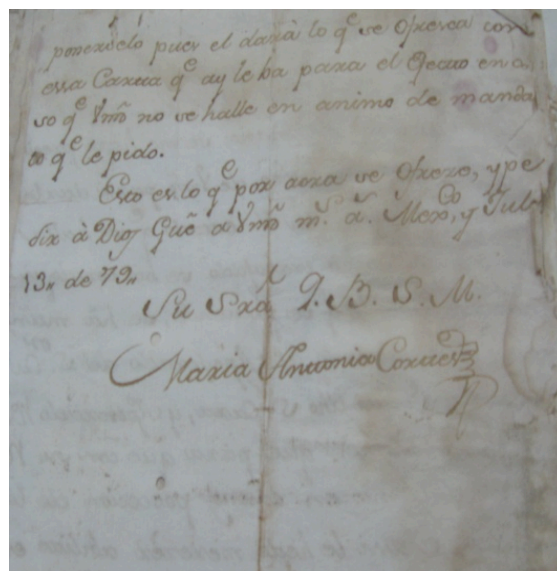 ponerselo pues el dara lo q.e se Ofresca con
essa Carta q.e ay le ba para el Efecto en ca
so q.e Vmd no se halle en animo de manda
lo q.e le pido.
Esto es lo q.e por aora se Ofrese, y pe
dir à Dios Gue a Vmd m.s a.s Mexco, y Jul
13,, de 79,,
Su Sra Q. B. S. M.
Maria Antonia Cortes